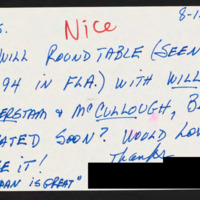 S. Nice 8-1
WILL ROUNDTABLE (SEEN
94 IN FLA.) WITH WILL
ERSTAM & McCULLOUGH, B
EATED SOON? WOULD LOV
E IT!
Thanks
AN IS GREAT"